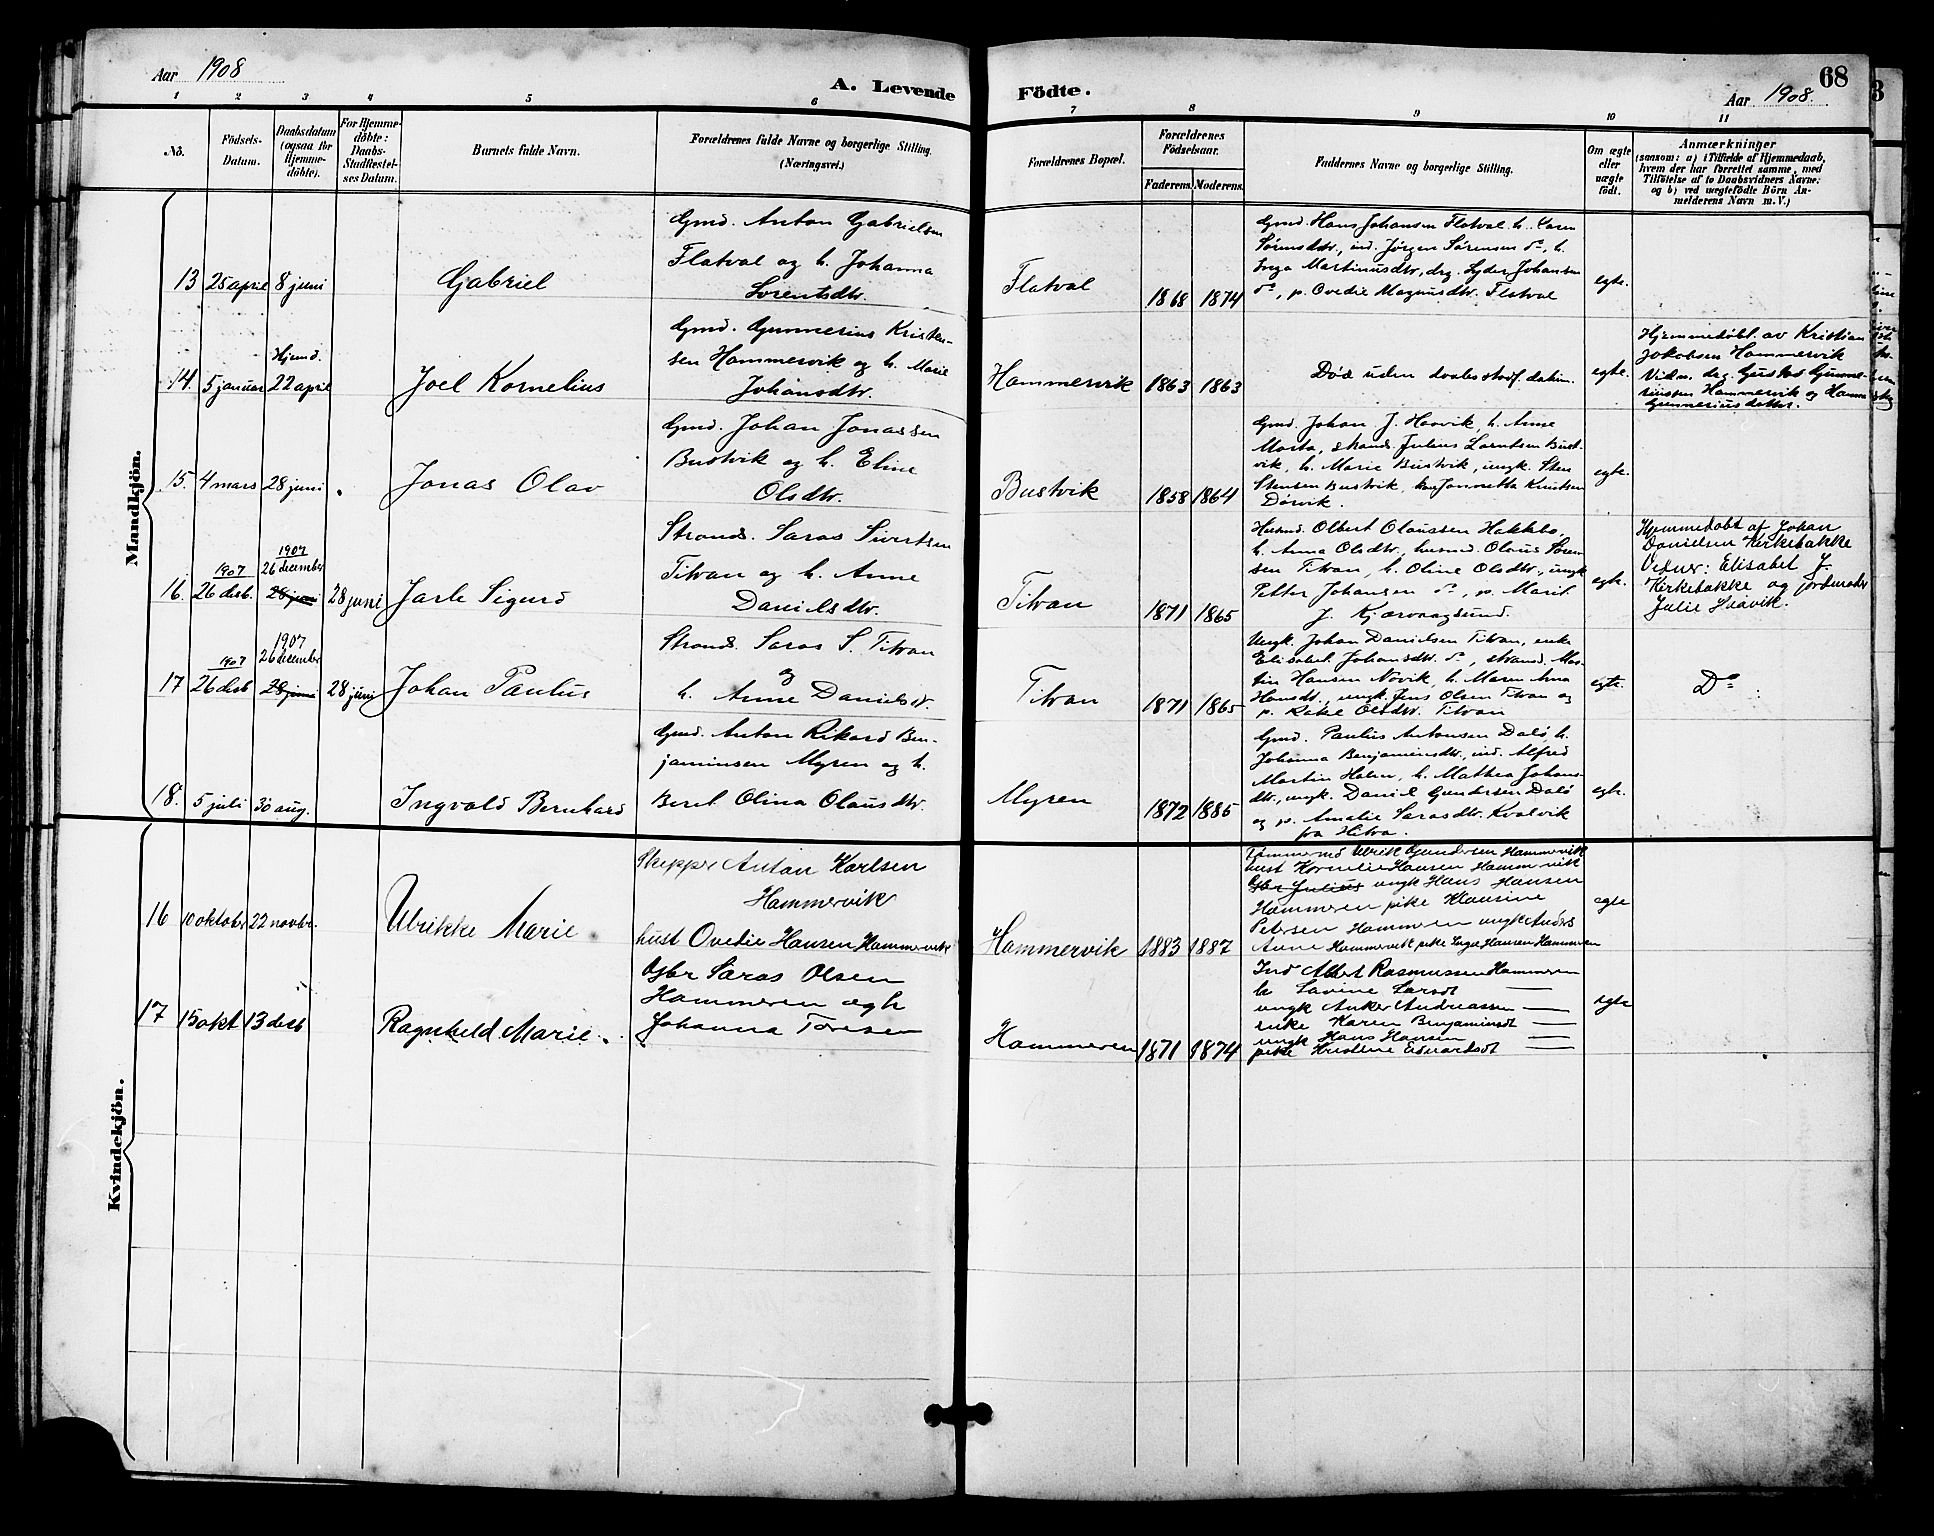 Aar 1908
A. Levende
Födte.
68
Aar 1908.
1 2 3 4 5 6 7 8 9 10 11
No.
Födsels-
Datum.
Daabsdatum
(ogsaa for
Hjemme-
döbte).
For Hjemme-
döbte:
Daabs-
Stadfæstel-
ses Datum.
Barnets fulde Navn.
Forældrenes fulde Navne og borgerlige Stilling.
(Næringsvei.)
Forældrenes Bopæl.
Forældrenes
Födselsaar.
Faderens.
Moderens.
Faddernes Navne og borgerlige Stilling.
Om ægte
eller
uægte
födt.
Anmærkninger
(saasom: a) i Tilfælde af Hjemmedaab,
hvem der har forrettet samme, med
Tilföielse af to Daabsvidners Navne;
og b) ved uægtefödte Börn An-
melderens Navn m. V.)
Mandkjön.
13 25 april 8 juni
Gabriel
Gmd. Anton Gabrielsen
Flatval og h. Johanna
Lorentsdtr.
Flatval
1868 1874
Gmd. Hans Johansen Flatval h. Caren
Sörensdtr., ind. Jörgen Sörensen do, h.
Inga Martinusdtr, drg. Lyder Johansen
do, p. Ovedie Magnusdtr. Flatval
egte.
14. 5 januar
Hjemd.
22 april
Joel Kornelius
Gmd. Gunnerius Kristen-
sen Hammervik og h. Marie
Johansdtr.
Hammervik
1863 1863
Död uden daabsstadf. datum.
egte.
Hjemmedöbt av Kristian
Jakobsen Hammervik
Vidn. drg. Gustav Gunne-
riussen Hammervik og Hanna
Gunneriusdatter.
15. 4 mars 28 juni
Jonas Olav
Gmd. Johan Jonassen
Bustvik og h. Eline
Olsdtr.
Bustvik
1858 1864
Gmd. Johan J. Haavik, h. Anne
Marta, strands. Julius Larntsen Bust-
vik, h. Marie Bustvik, ungk. Sten
Stensen Bustvik, Jonnetta Knutsen
Dörvik.
egte.
16.
1907
26 desb
1907
26 december
28 juni
28 juni
Jarle Sigurd
Strands. Saras Sivertsen
Titran og h. Anne
Danielsdtr.
Titran
1871 1865
Husmd. Olbert Olaussen Hakklo,
h. Anna Olsdtr., husmd. Olaus Sören-
sen Titran, h. Oline Olsdtr., ungk
Petter Johansen do, p. Marit
J. Kjærvaagsund.
egte.
Hjemmedöbt af Johan
Danielsen Kirkebakke
Vidner: Elisabet J.
Kirkebakke og jordmoder
Julie Slavik.
17
1907
26 desb
1907
26 december
28 juni
28 juni
Johan Paulus
Strands. Saras S. Titran
og
h. Anne Danielsdtr.
Titran
1871 1865
Ungk. Johan Danielsen Titran, enke
Elisabet Johansdtr. do, strands. Mar-
tin Hansen Novik, h. Maren Ana
Hansdt., ungk. Jens Olsen Titran og
p. Rakel Olsdtr. Titran
egte.
Do
18. 5 juli 30 aug.
Ingvald Bernhard
Gmd. Anton Rikard Ben-
jaminsen Myren og h.
Beret Olina Olausdtr.
Myren
1872 1885
Gmd. Paulus Antonsen Dalö h.
Johanna Benjaminsdtr., ind. Alfred
Martin Holen, h. Mathea Johans-
dtr., ungk. Daniel Gundersen Dalö
og p. Amalie Sarasdtr. Kvalvik
fra Hitra.
egte.
Kvindekjön.
16 10 oktober 22 novbr.
Ulrikke Marie
Skipper Anton Karlsen
Hammervik
hust Ovedie Hansen Hammervik
Hammervik
1883 1887
Tömmermd Ulrik Gundersen Hammervik
hust Kornelie Hansen Hammervik
Gbr Julius ungk Hans Hansen
Hammeren pike Klausine
Petersen Hammeren ungk Anders
Anne Hammervik pike Inga Hansen Hammeren
egte
17 15 okt 13 desb
Ragnhild Marie.
Gbr Saras Olsen
Hammeren og h
Johanna Toresen
Hammeren
1871 1874
Ind Albert Rasmussen Hammeren
h Lavine Larsdt —
ungk Anker Andreassen —
enke Karen Benjaminsdt —
ungk Hans Hansen —
pike Kristine Edvardsdt —
egte